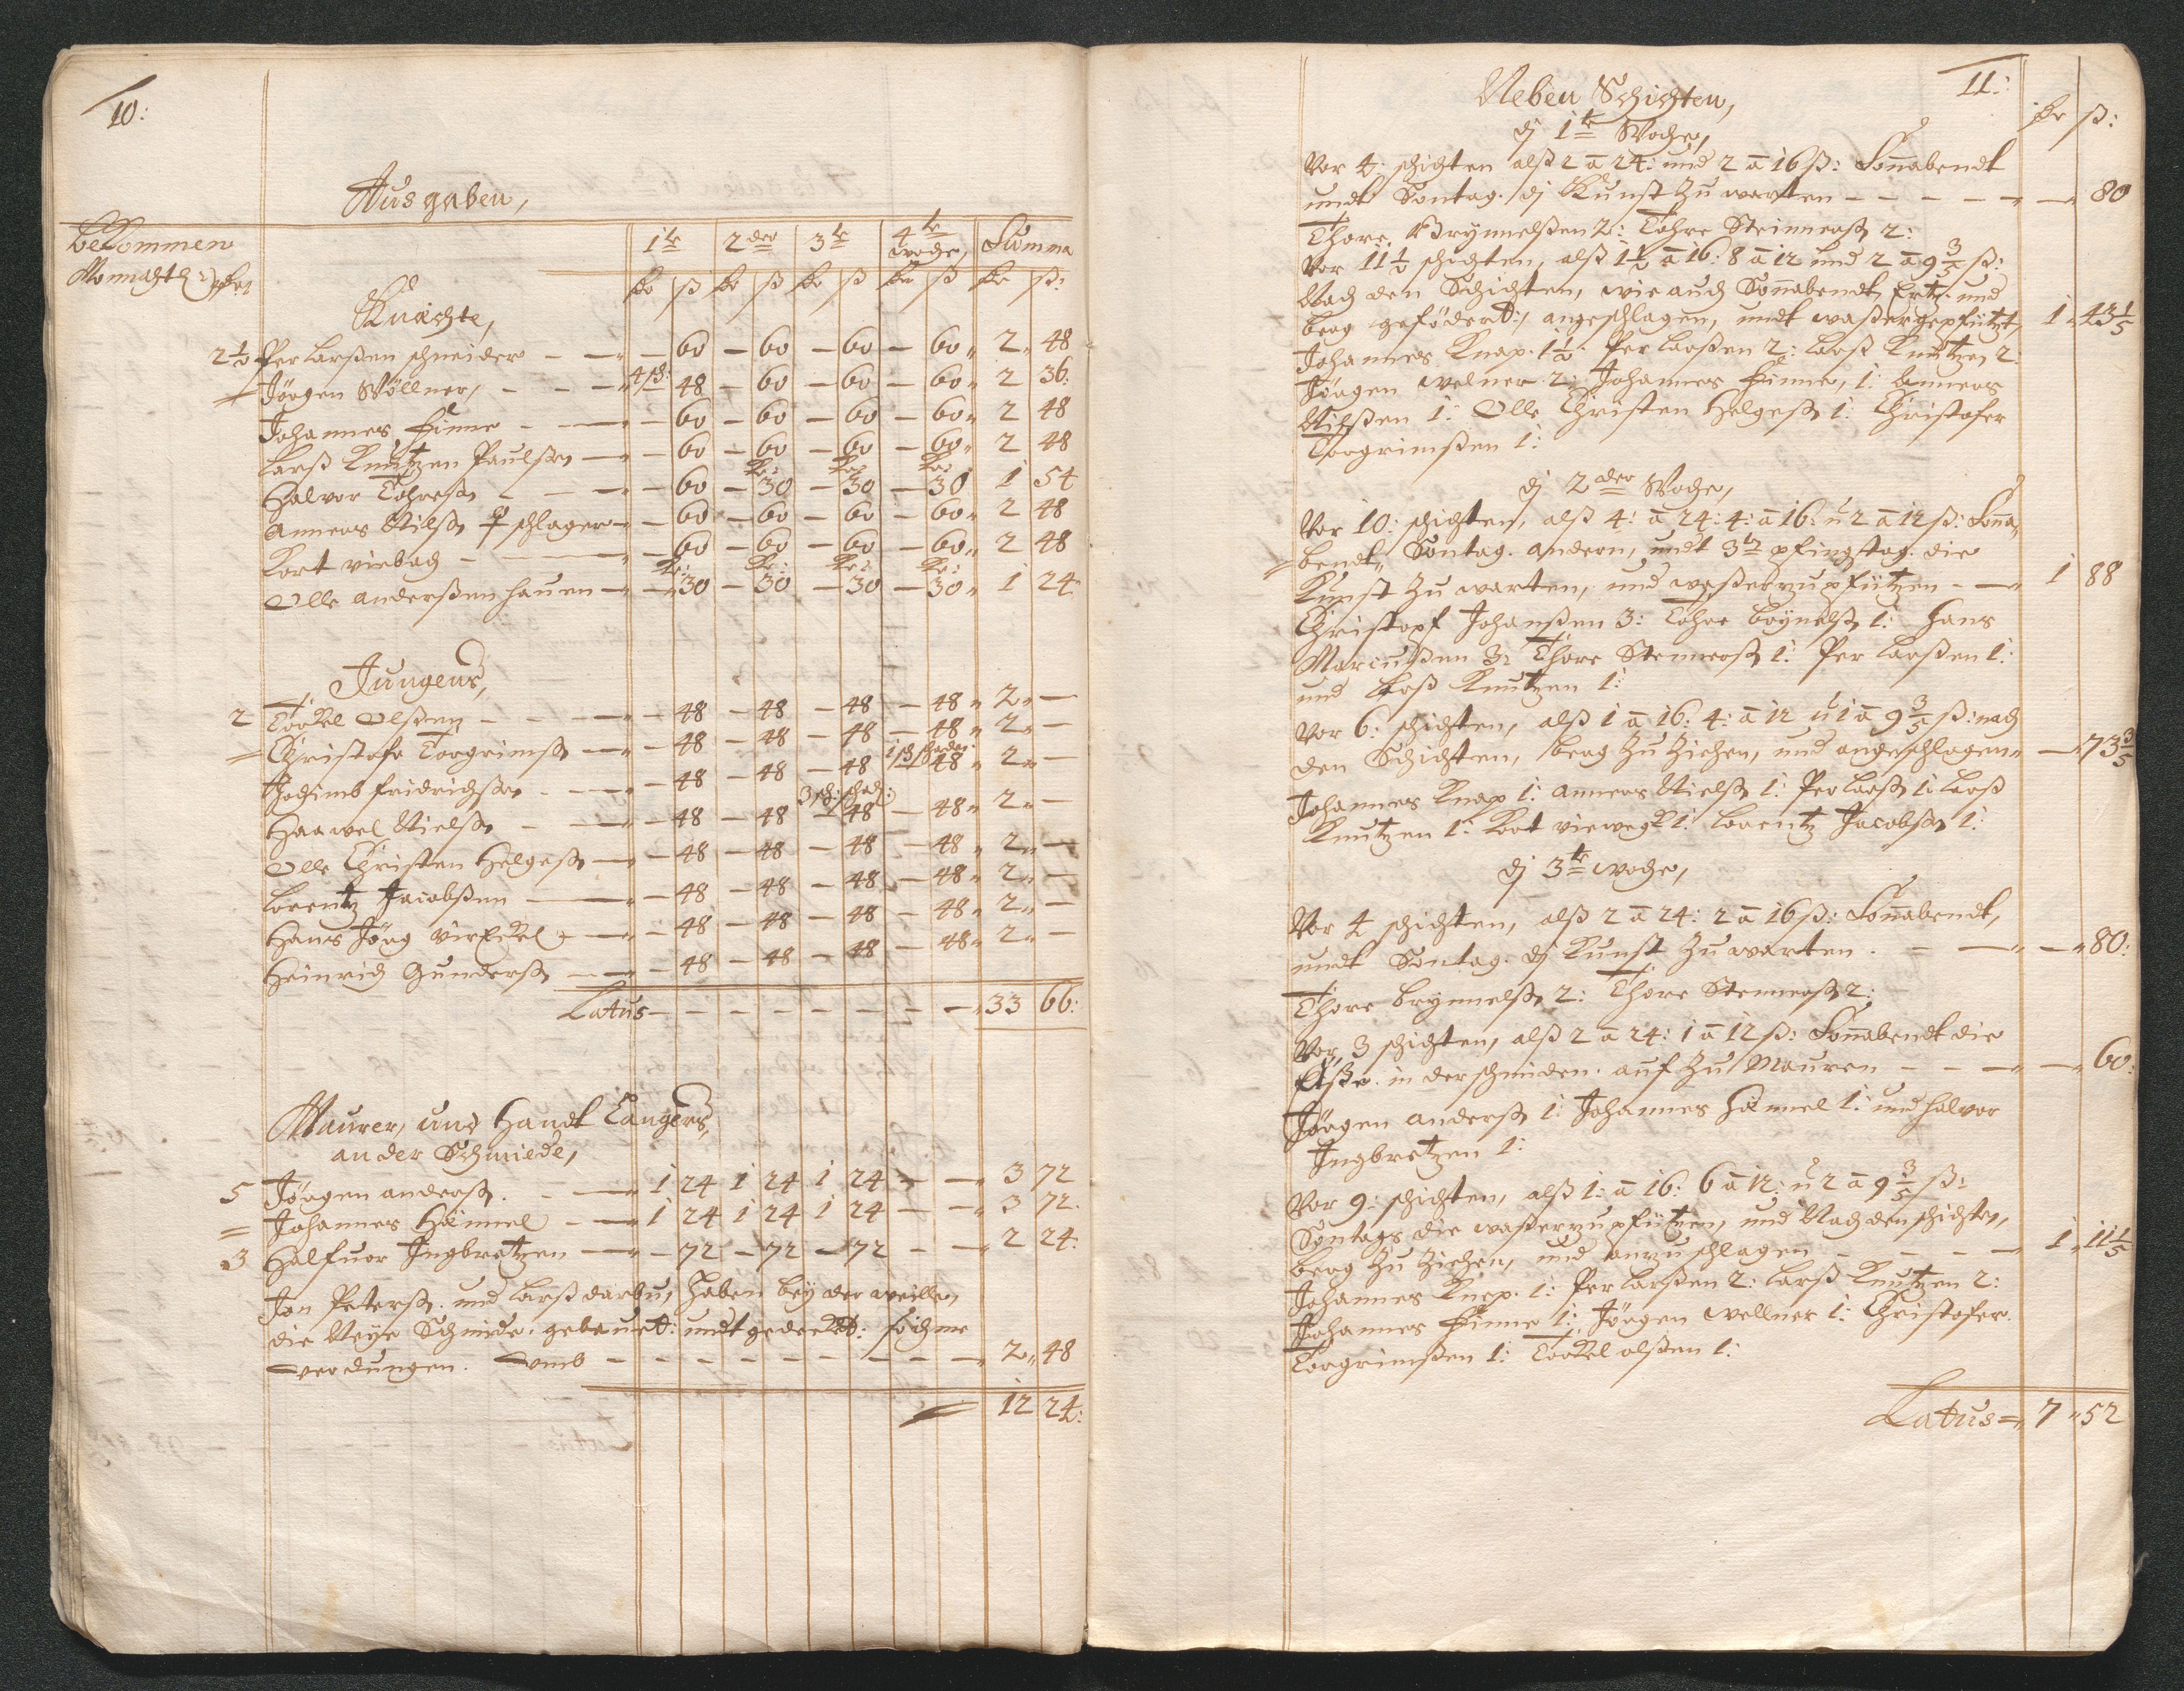 10:
Ausgaben,
bekommen
Monnaht
1te 2der 3te 4te woche, Summa
Rr ß Rr ß Rr ß Rr ß Rr ß:
Knächte,
2½ Per Larßen schneider — 60 — 60 — 60 — 60 „ 2 „ 48
= Jörgen Wöllner, 4 sch: 48 — 60 — 60 — 60 „ 2 36:
Johannes Finne — 60 — 60 — 60 — 60 „ 2 48
Larß Knutzen Paulß — 60 — 60 — 60 — 60 „ 2 48
Halvor Tohreß — 60 — Kr: 30 — Kr: 30 — Kr: 30 1 54
Anners Nilß schlager — 60 — 60 — 60 — 60 „ 2 48
Kort viebag — 60 — 60 — 60 — 60 „ 2 48
Olle anderßen hauen — Kr: 30 — Kr: 30 — Kr: 30 — Kr: 30 „ 1 24
Jungens,
2 Torkel Olßen — 48 — 48 — 48 — 48 „ 2 „ —
= Christofr Torgrimß — 48 — 48 — 48 — 48 „ 2 „ —
Jochimb fridrichß — 48 — 48 — 48 1 sch 48 „ 2 „ —
Haawel Nielß — 48 — 48 3 sch: 48 — 48 „ 2 „ —
Olle Christen Helgeß — 48 — 48 — 48 — 48 „ 2 „ —
Lorentz Jacobßen — 48 — 48 — 48 — 48 „ 2 „ —
Hans Jörg — 48 — 48 — 48 — 48 „ 2 „ —
Heinrich Gunderß — 48 — 48 — 48 — 48 „ 2 „ —
Latus — 33 66:
Maurer, und Handt Langers,
an der Schmiede,
5 Jörgen anderß. 1 24 1 24 1 24 — — 3 72
= Johannes Hämmel 1 24 1 24 1 24 — — 3 72.
3 Halfuor Ingbretzen — 72 — 72 — 72 — — 2 24:
Jan Peterß. und Larß darbu, haben bey der weille,
die Neye Schmide, gebauet: undt gedecket:
verdungen. vmb — 2 „ 48
12 24:
11:
Neben Schichten,
Rr ß:
dj 1te Woche,
Vor 4: schichten alß 2 a 24: und 2 a 16 ß: Sonnabendt
undt Sontag. dj Kunst zu warten — 80
Thore. Brynnelßen 2: Tohre Steinnerß 2:
Vor 11½ schichten, alß 1½ a 16: 8 a 12 und 2 a 9 3/5 ß:
Nach den Schichten, wie auch Sonnabendt, Ertz und
berg gefödert:, angeschlagen, undt waßergepfützt, 1 „ 43 1/5
Johannes Knap. 1½. Per Larßen 2: Larß Knutzen 2:
Jörgen welner 2: Johannes Finne, 1: Anners
Nilßen 1: Olle Christen Helgeß 1: Christofer
Torgrimßen 1:
dj 2der Woche,
Vor 10: schichten, alß 4: a 24: 4: a 16: u 2 a 12 ß: Sonna„
= bendt, Sontag. andern, undt 3te pfingstag. die
Kunst zu warten, und waßerzupfützen — 1 88
Christopf Johanßen 3: Tohre Brynelß 1: Hans
Marcußen 3: Thore Stennerß 1: Per Larßen 1:
und Larß Knutzen 1:
Vor 6: schichten, alß 1 a 16: 4: a 12 u 1 a 9 3/5 ß: nach
den Schichten, berg zu ziehen, und angeschlagen „ — 73 3/5
Johannes Knap 1: anners Nielß 1: Per Larß 1: Larß
Knutzen 1: Kort viewegk 1: Lorentz Jacobß 1:
dj 3te woche,
Vor 4 schichten, alß 2 a 24: 2 a 16 ß: Sonnabendt,
undt Sontag. dj Kunst zu warten. — „ 80:
Thore Brynnelß 2: Thore Stennerß 2:
Vor 3 schichten, alß 2 a 24: 1 a 12 ß: Sonnabendt die
Eße. in der schmiden. auf zu Mauren — 60:
Jörgen anderß 1: Johannes Hämmel 1: und Halvor
Ingbretzen 1:
Vor 9: schichten, alß 1: a 16: 6 a 12: u 2 a 9 3/5 ß:
Sontags die waßerzupfützen, und Nach den schichten,
berg zu ziehen, und anzuschlagen — 1 „ 11 1/5
Johannes Knap. 1: Per Larßen 2: Larß Knutzen 2:
Johannes Finne 1: Jörgen Wellner 1: Christofer.
Torgrimßen 1: Torkel olßen 1:
Latus = „ 7 „ 52